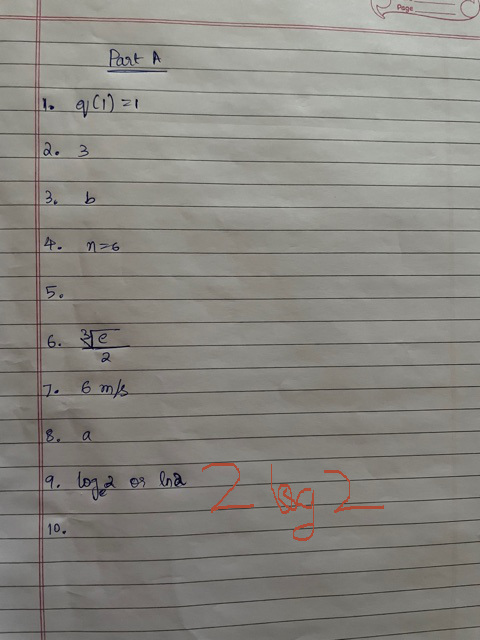 Page
Part A
1. q(1)=1
2. 3
3. b
4. n=6
5.
6. ∛e/2
7. 6 m/s
8. a
9. logₑ2 or ln2 2 log 2
10.